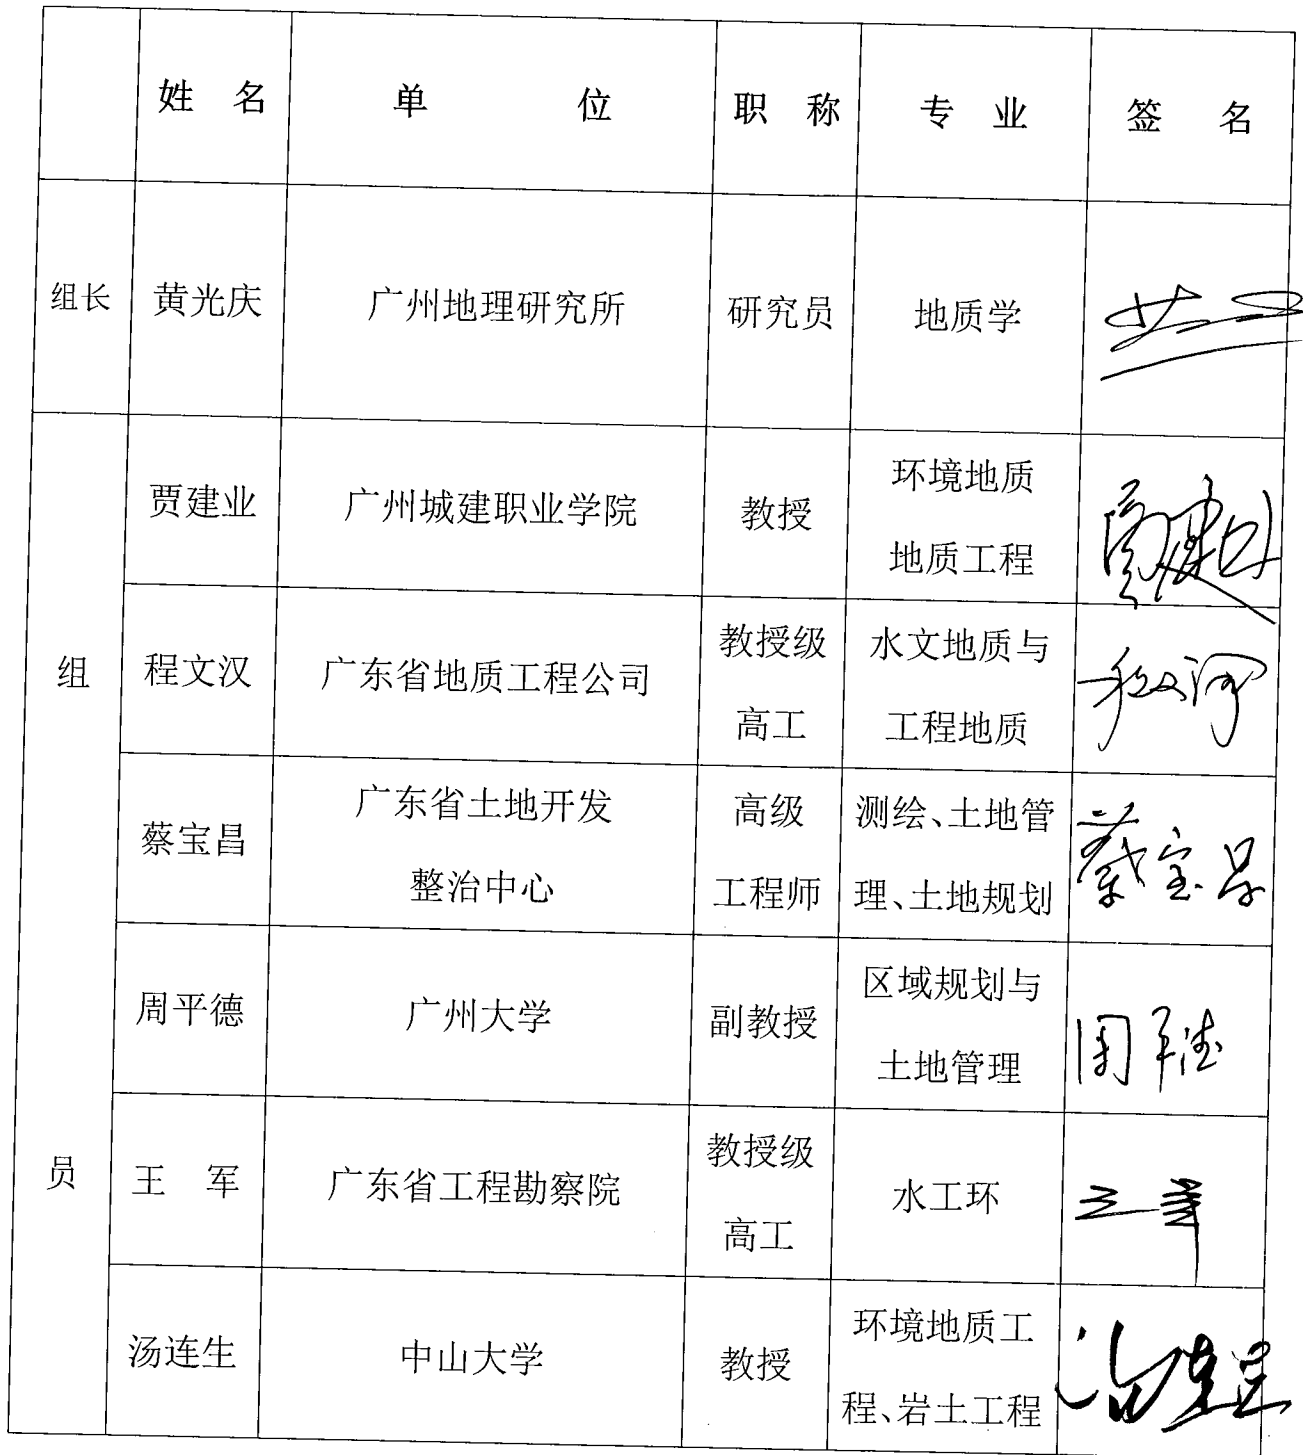 姓 名 单 位 职 称 专 业 签 名
组长 黄光庆 广州地理研究所 研究员 地质学
组员
贾建业 广州城建职业学院 教授 环境地质
地质工程
贾建业
程文汉 广东省地质工程公司 教授级
高工
水文地质与
工程地质
程文汉
蔡宝昌 广东省土地开发
整治中心
高级
工程师
测绘、土地管
理、土地规划
蔡宝昌
周平德 广州大学 副教授 区域规划与
土地管理
周平德
王 军 广东省工程勘察院 教授级
高工
水工环
王军
汤连生 中山大学 教授 环境地质工
程、岩土工程
汤连生